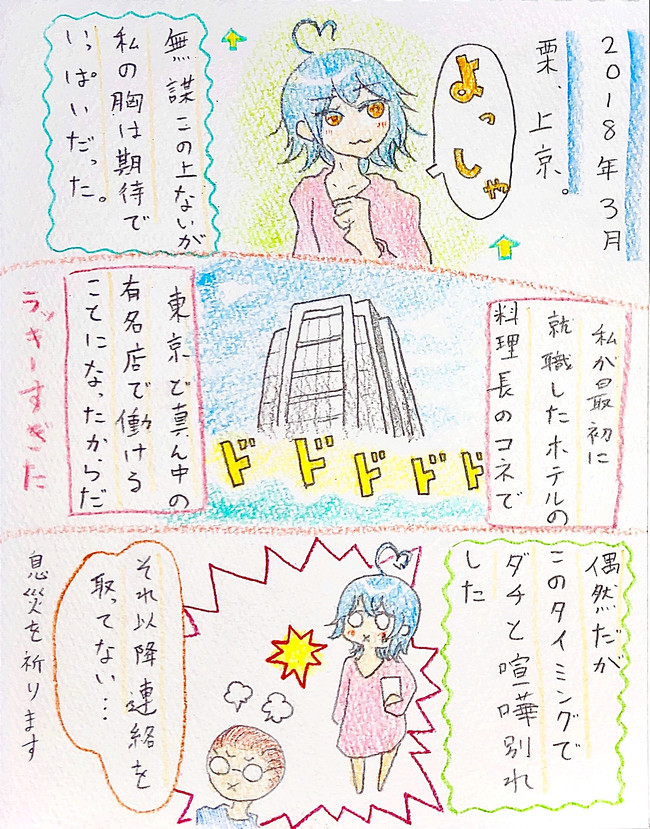 2018年3月
栗、上京。
よっしゃ
無謀この上ないが
私の胸は期待で
いっぱいだった。
私が最初に
就職したホテルの
料理長のコネで
ドドドドド
東京ど真ん中の
有名店で働ける
ことになったからだ
ラッキーすぎた
偶然だが
このタイミングで
ダチと喧嘩別れ
した
それ以降連絡を
取ってない…
息災を祈ります